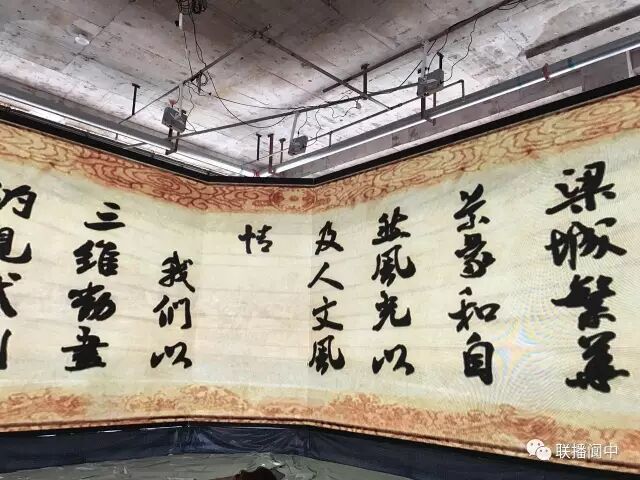 梁城繁华
景象和自
然风光以
及人文风
情
我们以
三维动画
的现代
联播阆中